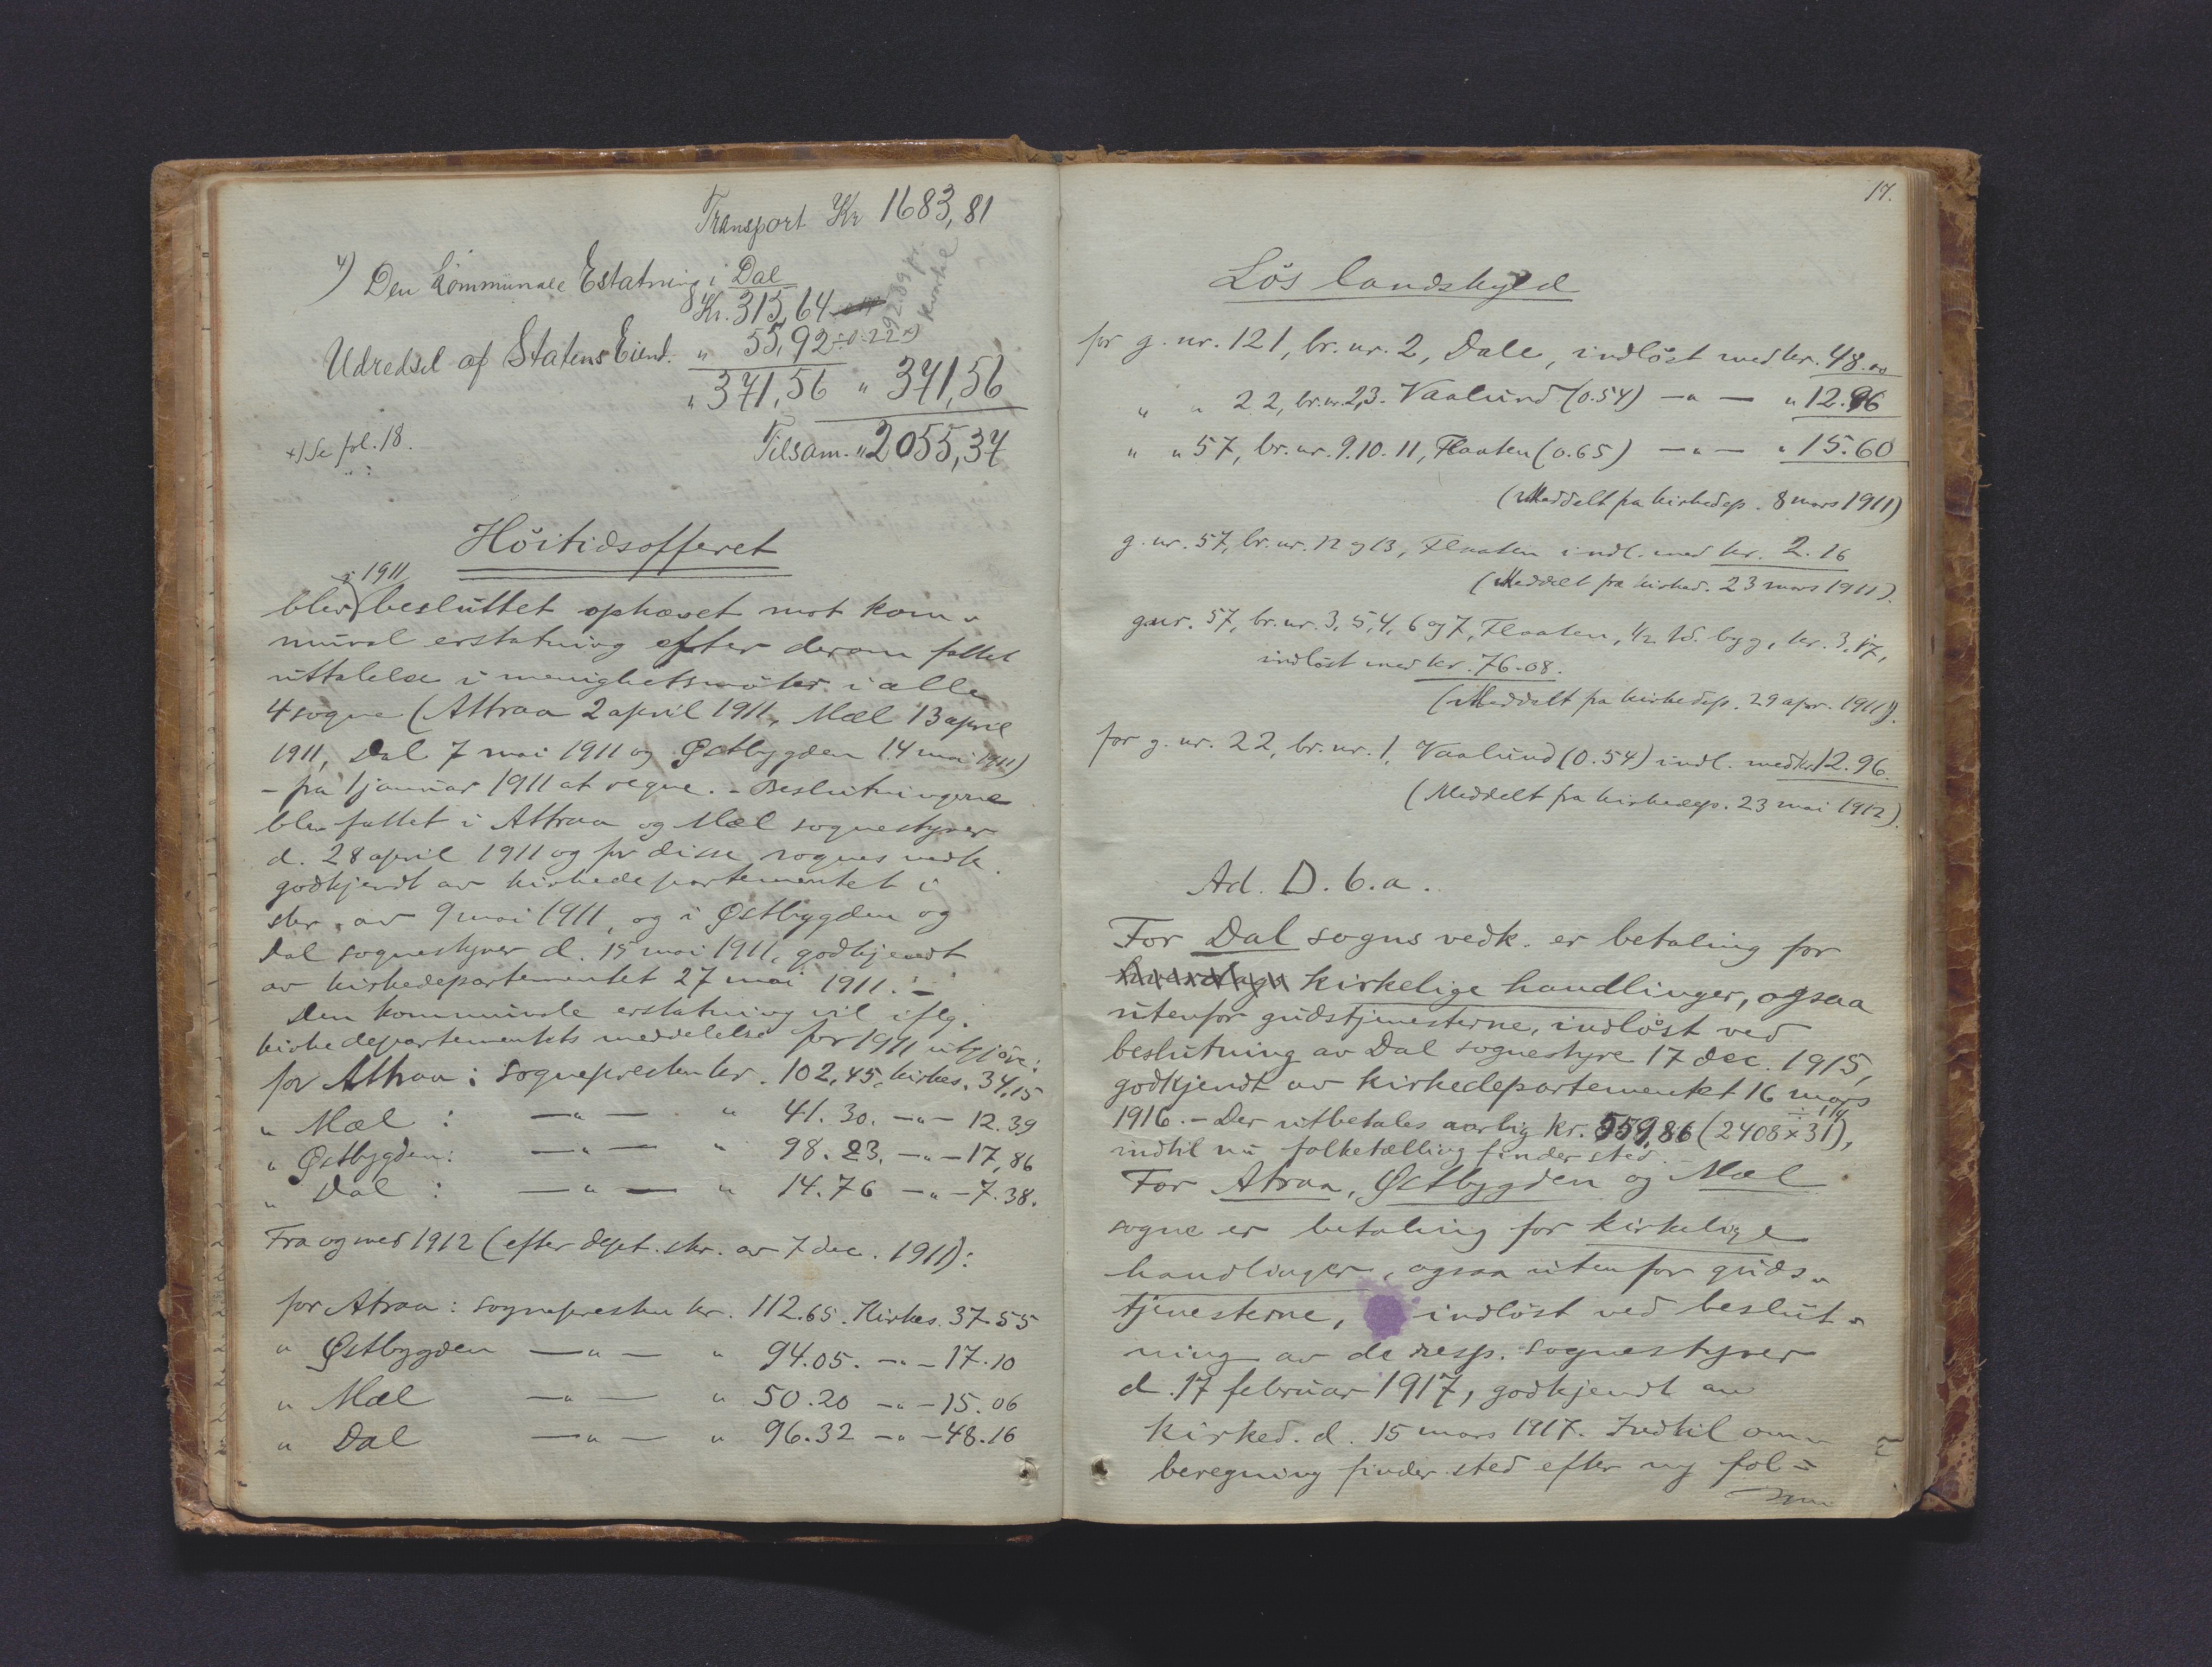 Transport Kr 1683,81
4) Den kommunale Erstatning i Dal
Kr. 315,64
92.89 pr. kvartal
Udredsel af Statens Eiend. " 55,92 ÷ 0.22 x)
" 371,56 " 371,56
x) Se fol. 18.
Tilsam. " 2055,37
Höitidsofferet
i 1911
blev besluttet ophævet mot kom-
munal erstatning efter derom fattet
uttalelse i menighetsmöter i alle
4 sogne (Attraa 2 april 1911, Mæl 13 april
1911, Dal 7 mai 1911 og Østbygden 14 mai 1911)
- fra 1 januar 1911 at regne. - Beslutningerne
blev fattet i Attraa og Mæl sognestyrer
d. 28 april 1911 og for disse sognes vedk.
godkjendt av kirkedepartementet i
skr. av 9 mai 1911, og i Østbygden og
Dal sognestyrer d. 15 mai 1911, godkjendt
av kirkedepartementet 27 mai 1911. -
Den kommunale erstatning vil iflg.
kirkedepartementets meddelelse for 1911 utgjöre:
for Attraa: Sognepresten kr. 102,45, kirkes. 34,15
" Mæl : —"— " 41.30. —"— 12.39
" Østbygden: —"— " 98.23. —"— 17,86
" Dal : —"— " 14.76 —"— 7.38.
Fra og med 1912 (efter dept. skr. av 7 dec. 1911):
for Atraa: sognepresten kr. 112.65. Kirkes. 37.55
" Østbygden —"— " 94.05. —"— 17.10
" Mæl —"— " 50.20 —"— 15.06
" Dal —"— " 96.32 —"— 48.16
17.
Lös landskyld
for g. nr. 121, br. nr. 2, Dale, indlöst med kr. 48.00
" " 22, br. nr. 2,3. Vaalund (0.54) —"— " 12.96
" " 57, br. nr. 9.10.11, Flaaten (0.65) —"— " 15.60
(Meddelt fra kirkedep. 8 mars 1911)
g. nr. 57, br. nr. 12 og 13, Flaaten indl. med kr. 2.16
(Meddelt fra kirked. 23 mars 1911).
g.nr. 57, br. nr. 3, 5, 4, 6 og 7, Flaaten, 1/2 td. byg, kr. 3.17,
indlöst med kr. 76.08.
(Meddelt fra kirkedep. 29 apr. 1911).
for g. nr. 22, br. nr. 1, Vaalund (0.54) indl. med kr. 12.96.
(Meddelt fra kirkedep. 23 mai 1912).
Ad. D. 6. a.
For Dal sogns vedk. er betaling for
kirkelige handlinger, ogsaa
utenfor gudstjenesterne, indlöst ved
beslutning av Dal sognestyre 17 dec. 1915,
godkjendt av kirkedepartementet 16 mars
1916. - Der utbetales aarlig kr. 559,86 (2408 x 31),
indtil ny folketælling finder sted.
For Atraa, Østbygden og Mæl
sogne er betaling for kirkelige
handlinger, ogsaa utenfor guds-
tjenesterne, indlöst ved beslut-
ning av de resp. sognestyrer
d. 17 februar 1917, godkjendt av
kirked. d. 15 mars 1917. Indtil om-
beregning finder sted efter ny fol-